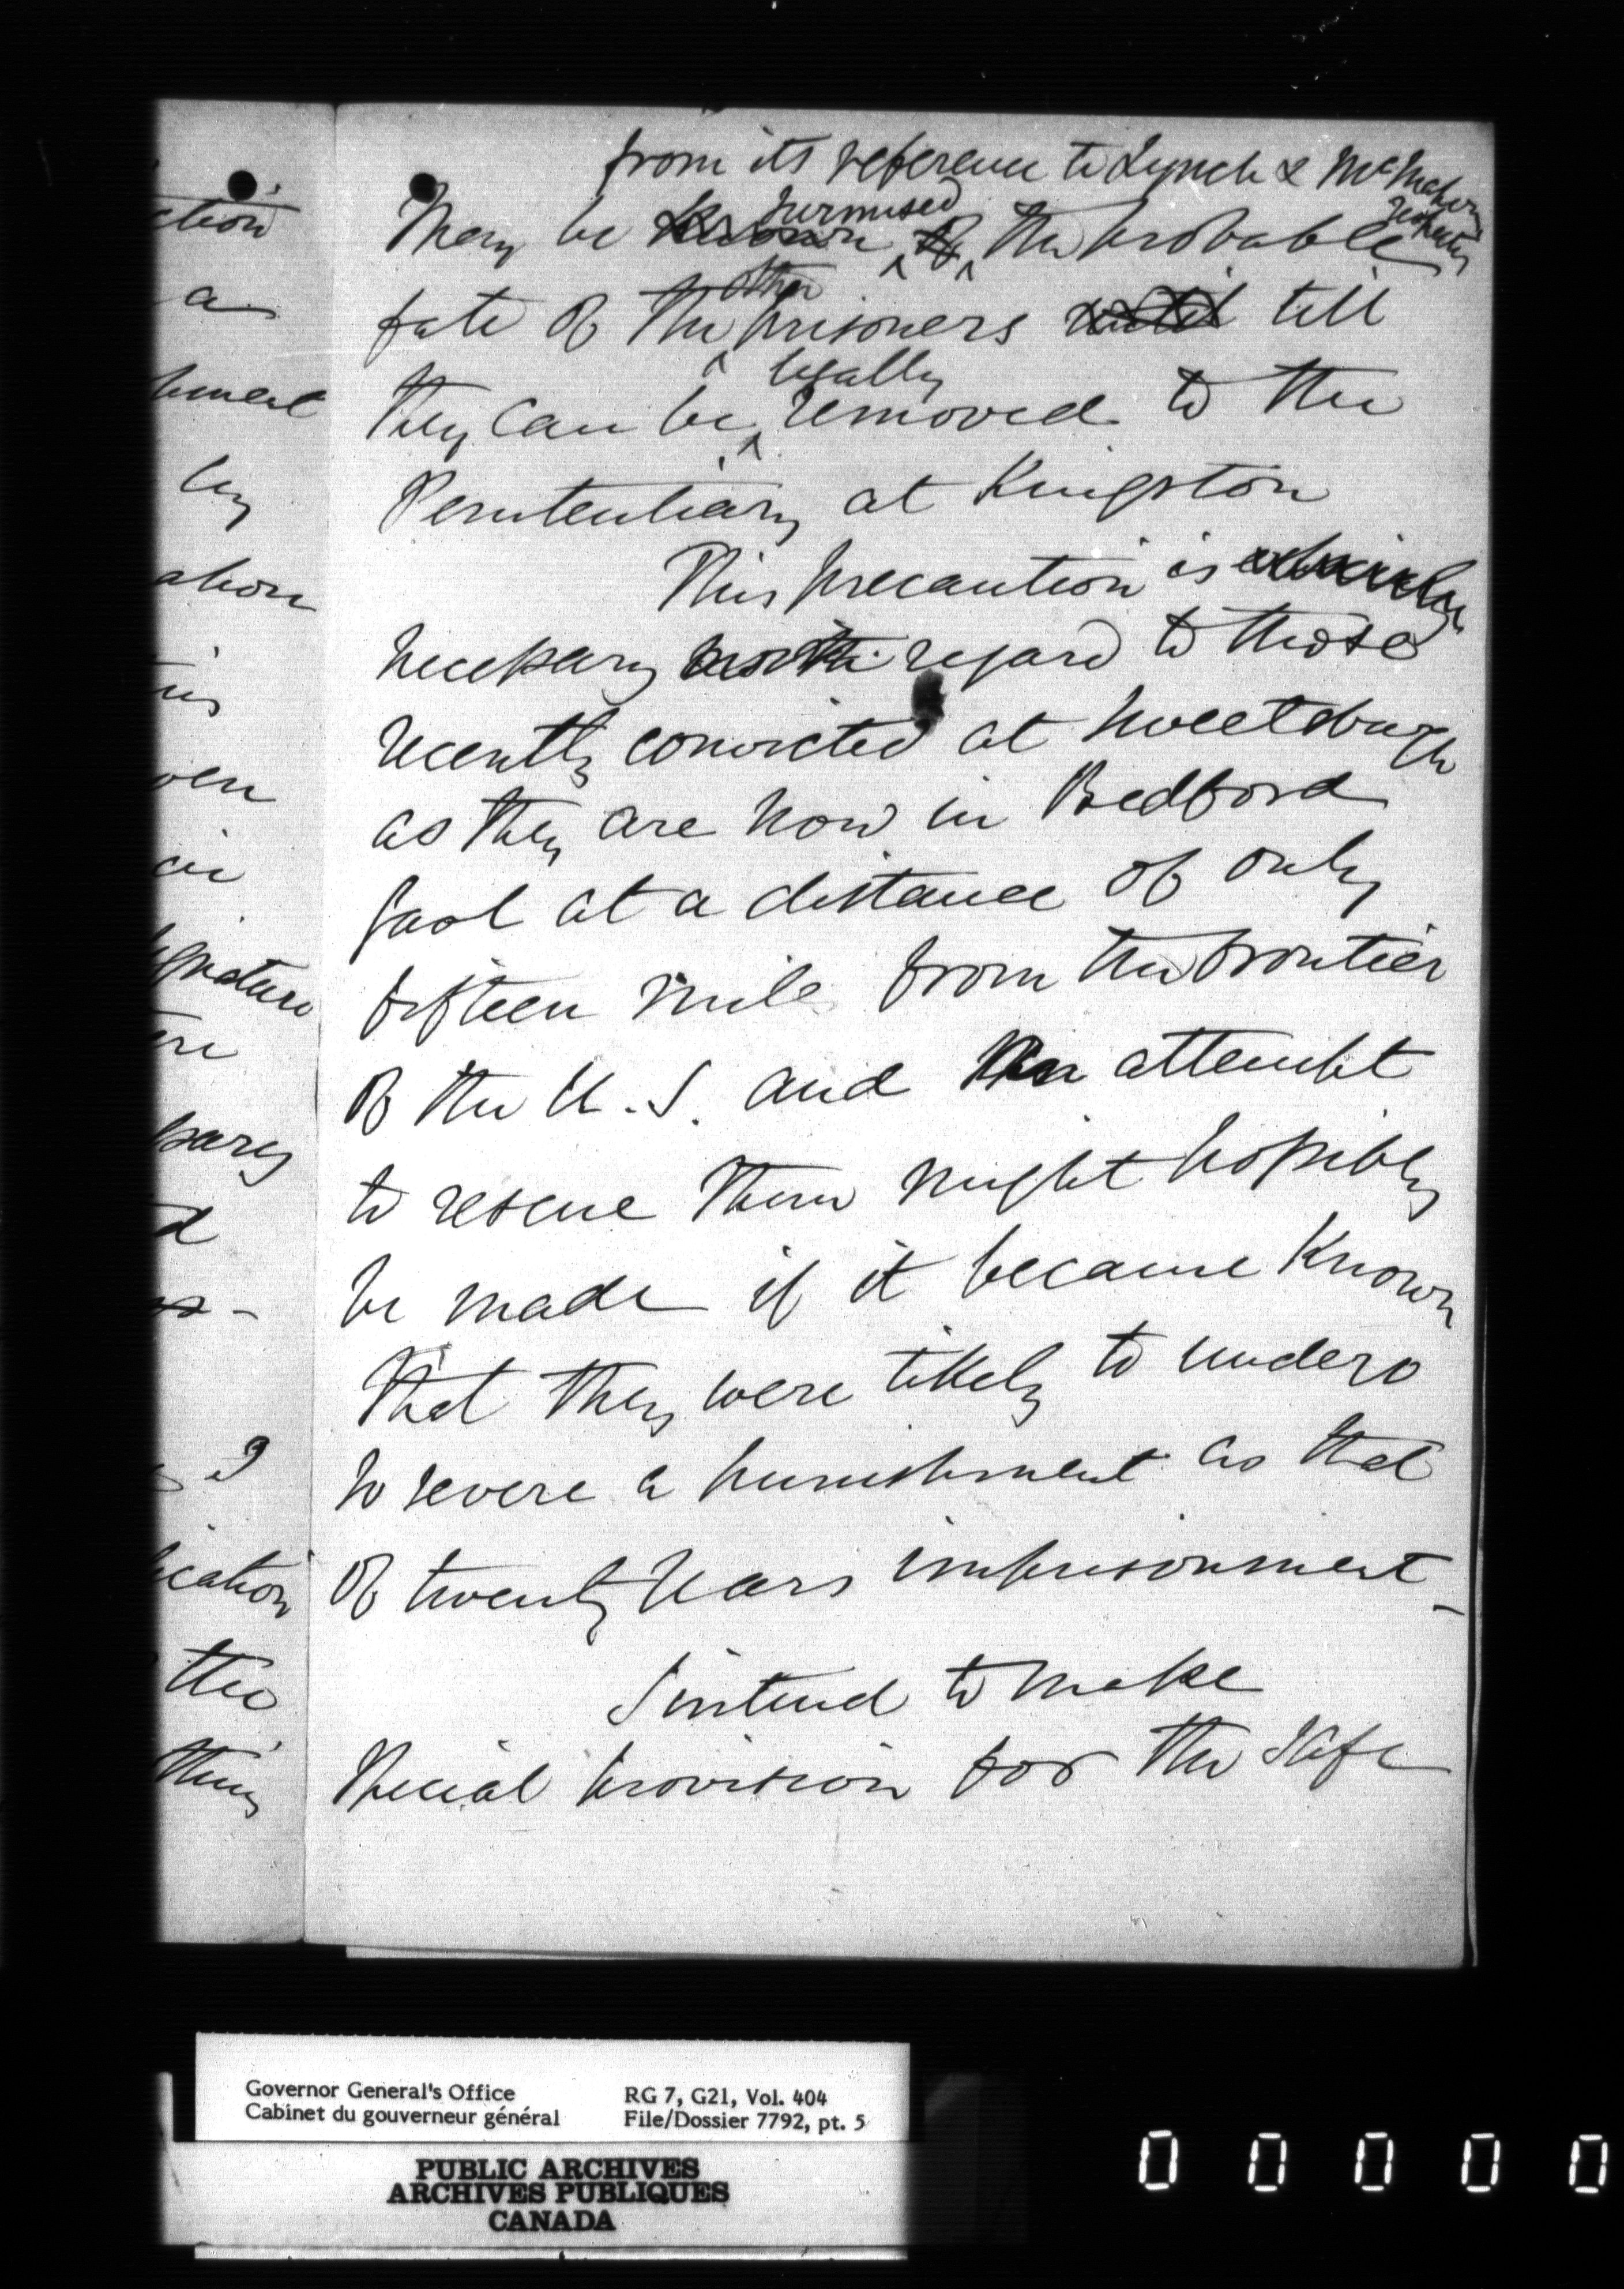 ction
a
by
ation
ven
in
ignature
ere
d
I
ication
the
thing
from its reference to Lynch & McMahon
surmised respecting
may be known of the probable
other
fate of the prisoners until till
legally
they can be removed to the
Penitentiary at Kingston
This precaution is
necessary with regard to those
recently convicted at Sweetsburgh
as they are now in Bedford
Gaol at a distance of only
fifteen miles from the frontier
of the U.S. and an attempt
to rescue them might possibly
be made if it became known
that they were likely to undero
so severe a punishment as that
of twenty years imprisonment_
I intend to make
special provision for the safe
Governor General's Office
Cabinet du gouverneur général
RG 7, G21, Vol. 404
File/Dossier 7792, pt. 5
PUBLIC ARCHIVES
ARCHIVES PUBLIQUES
CANADA
0 0 0 0 0